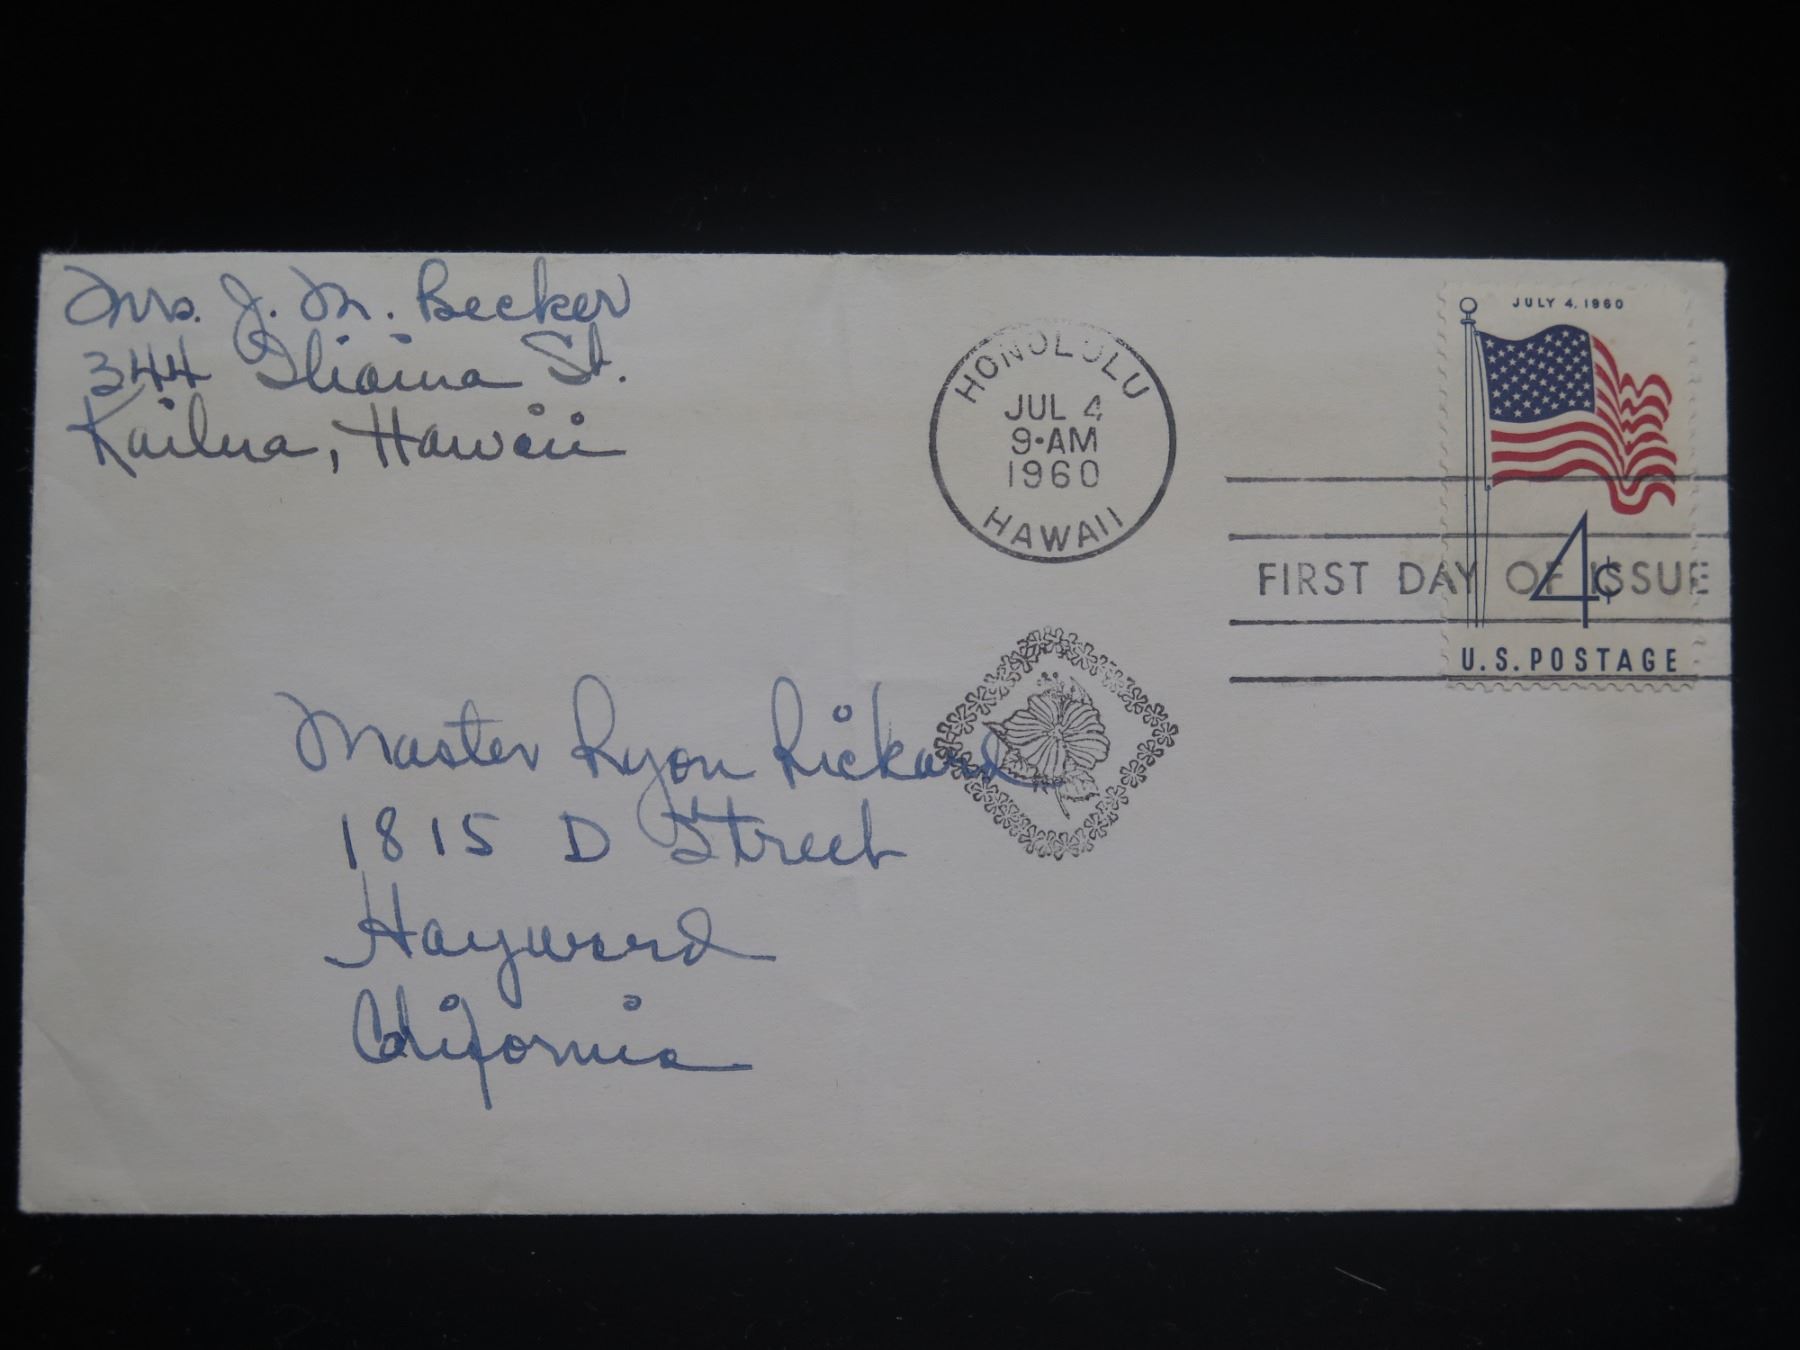 Mrs. J. M. Becker
344 Iliaina St.
Kailua, Hawaii
HONOLULU
JUL 4
9-AM
1960
HAWAII
JULY 4, 1960
4¢
FIRST DAY OF ISSUE
U.S. POSTAGE
Master Ryon Rickard
1815 D Street
Hayward
California